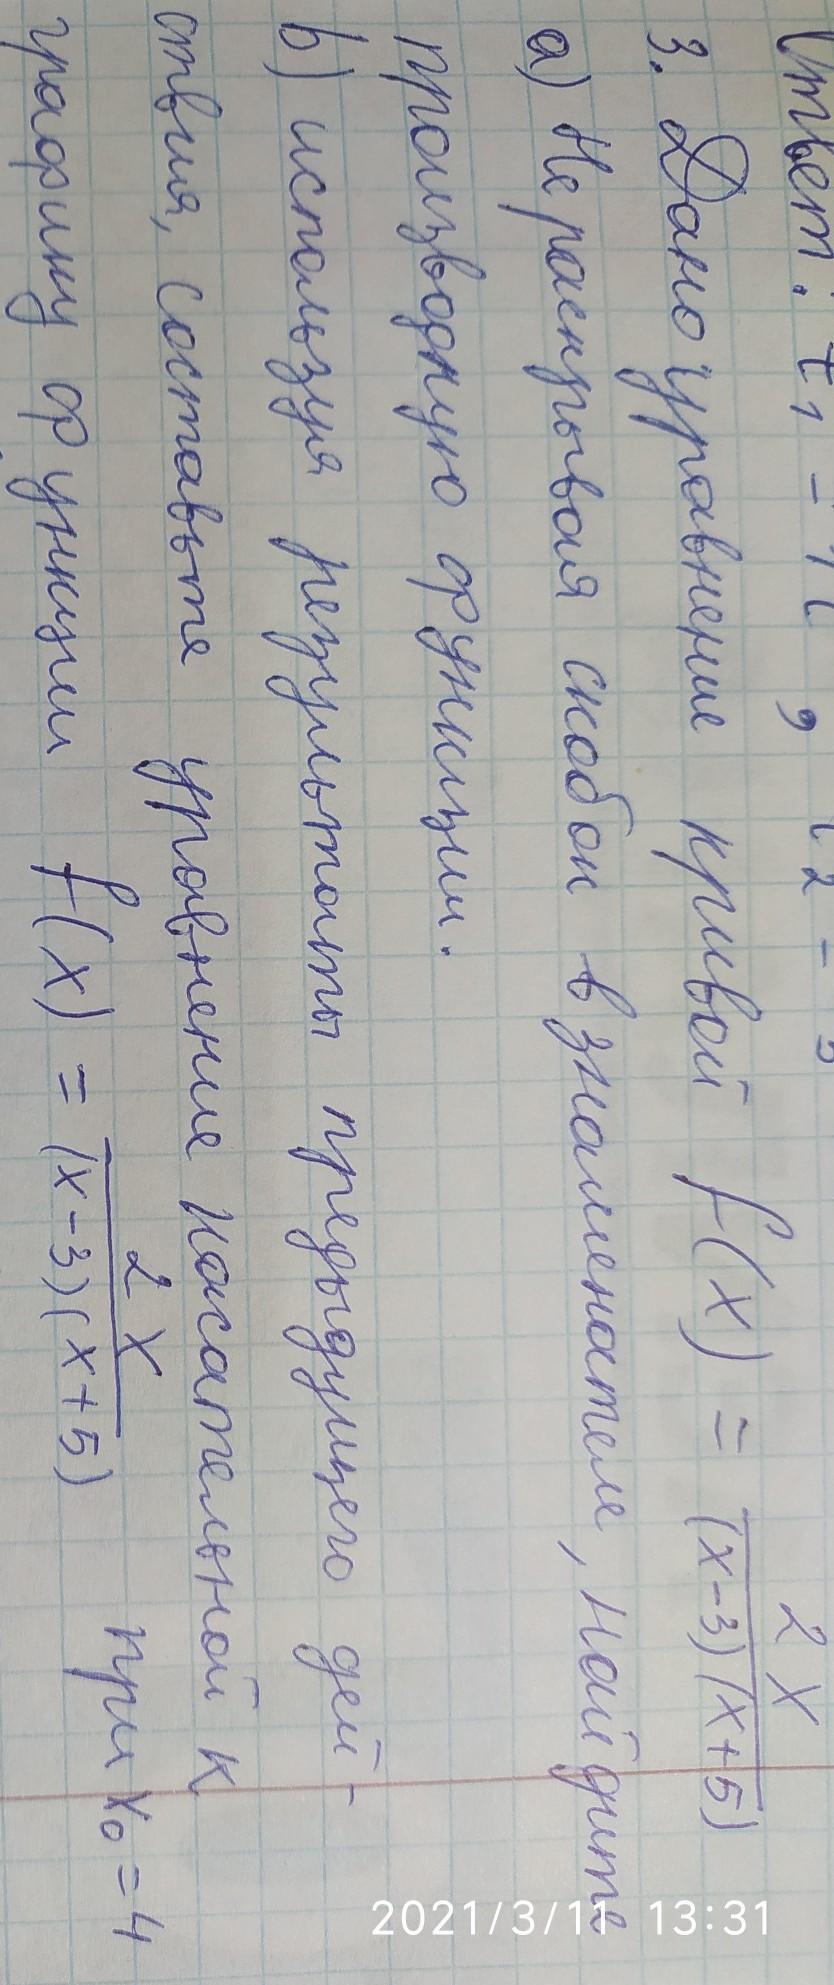 Ответ: t₁ = π, t₂ =
3. Дано уравнение кривой f(x) = 2x/((x-3)(x+5))
а) Не раскрывая скобок в знаменателе, найдите
производную функции.
b) используя результаты предыдущего дей-
ствия, составьте уравнение касательной к
графику функции f(x) = 2x/((x-3)(x+5)) при x₀ = 4
2021/3/11 13:31